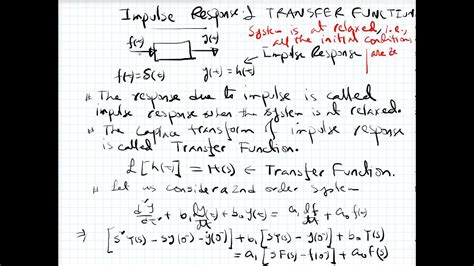 Impulse Response & TRANSFER FUNCTION
System is at relaxed, i.e.,
all the initial conditions
are 0
f(t) y(t)
f(t) = δ(t) y(t) = h(t) ← Impulse Response
The response due to impulse is called
impulse response when the system is at relaxed.
The Laplace transform of impulse response
is called Transfer Function.
ℒ[h(t)] = H(s) ← Transfer Function.
Let us consider a 2nd order system
d²y/dt² + b₁ dy/dt + b₀ y(t) = a₁ df/dt + a₀ f(t)
⇒ [s²Y(s) - sy(0⁻) - ẏ(0⁻)] + b₁[sY(s) - y(0⁻)] + b₀ Y(s)
= a₁[sF(s) - f(0⁻)] + a₀ F(s)